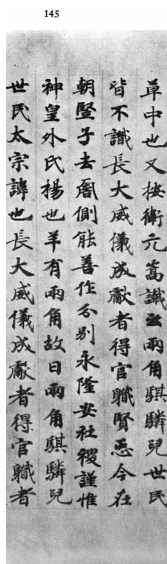 145
草中也又按衛元嵩讖云兩角騏驎兒世民
皆不識長大威儀成獻者得官職賢𢘑今在
朝竪子去𠺞側能善作分別永隆安社稷謹惟
神皇外氏楊也羊有兩角故曰兩角騏驎兒
世民太宗諱也長大威儀成獻者得官職者